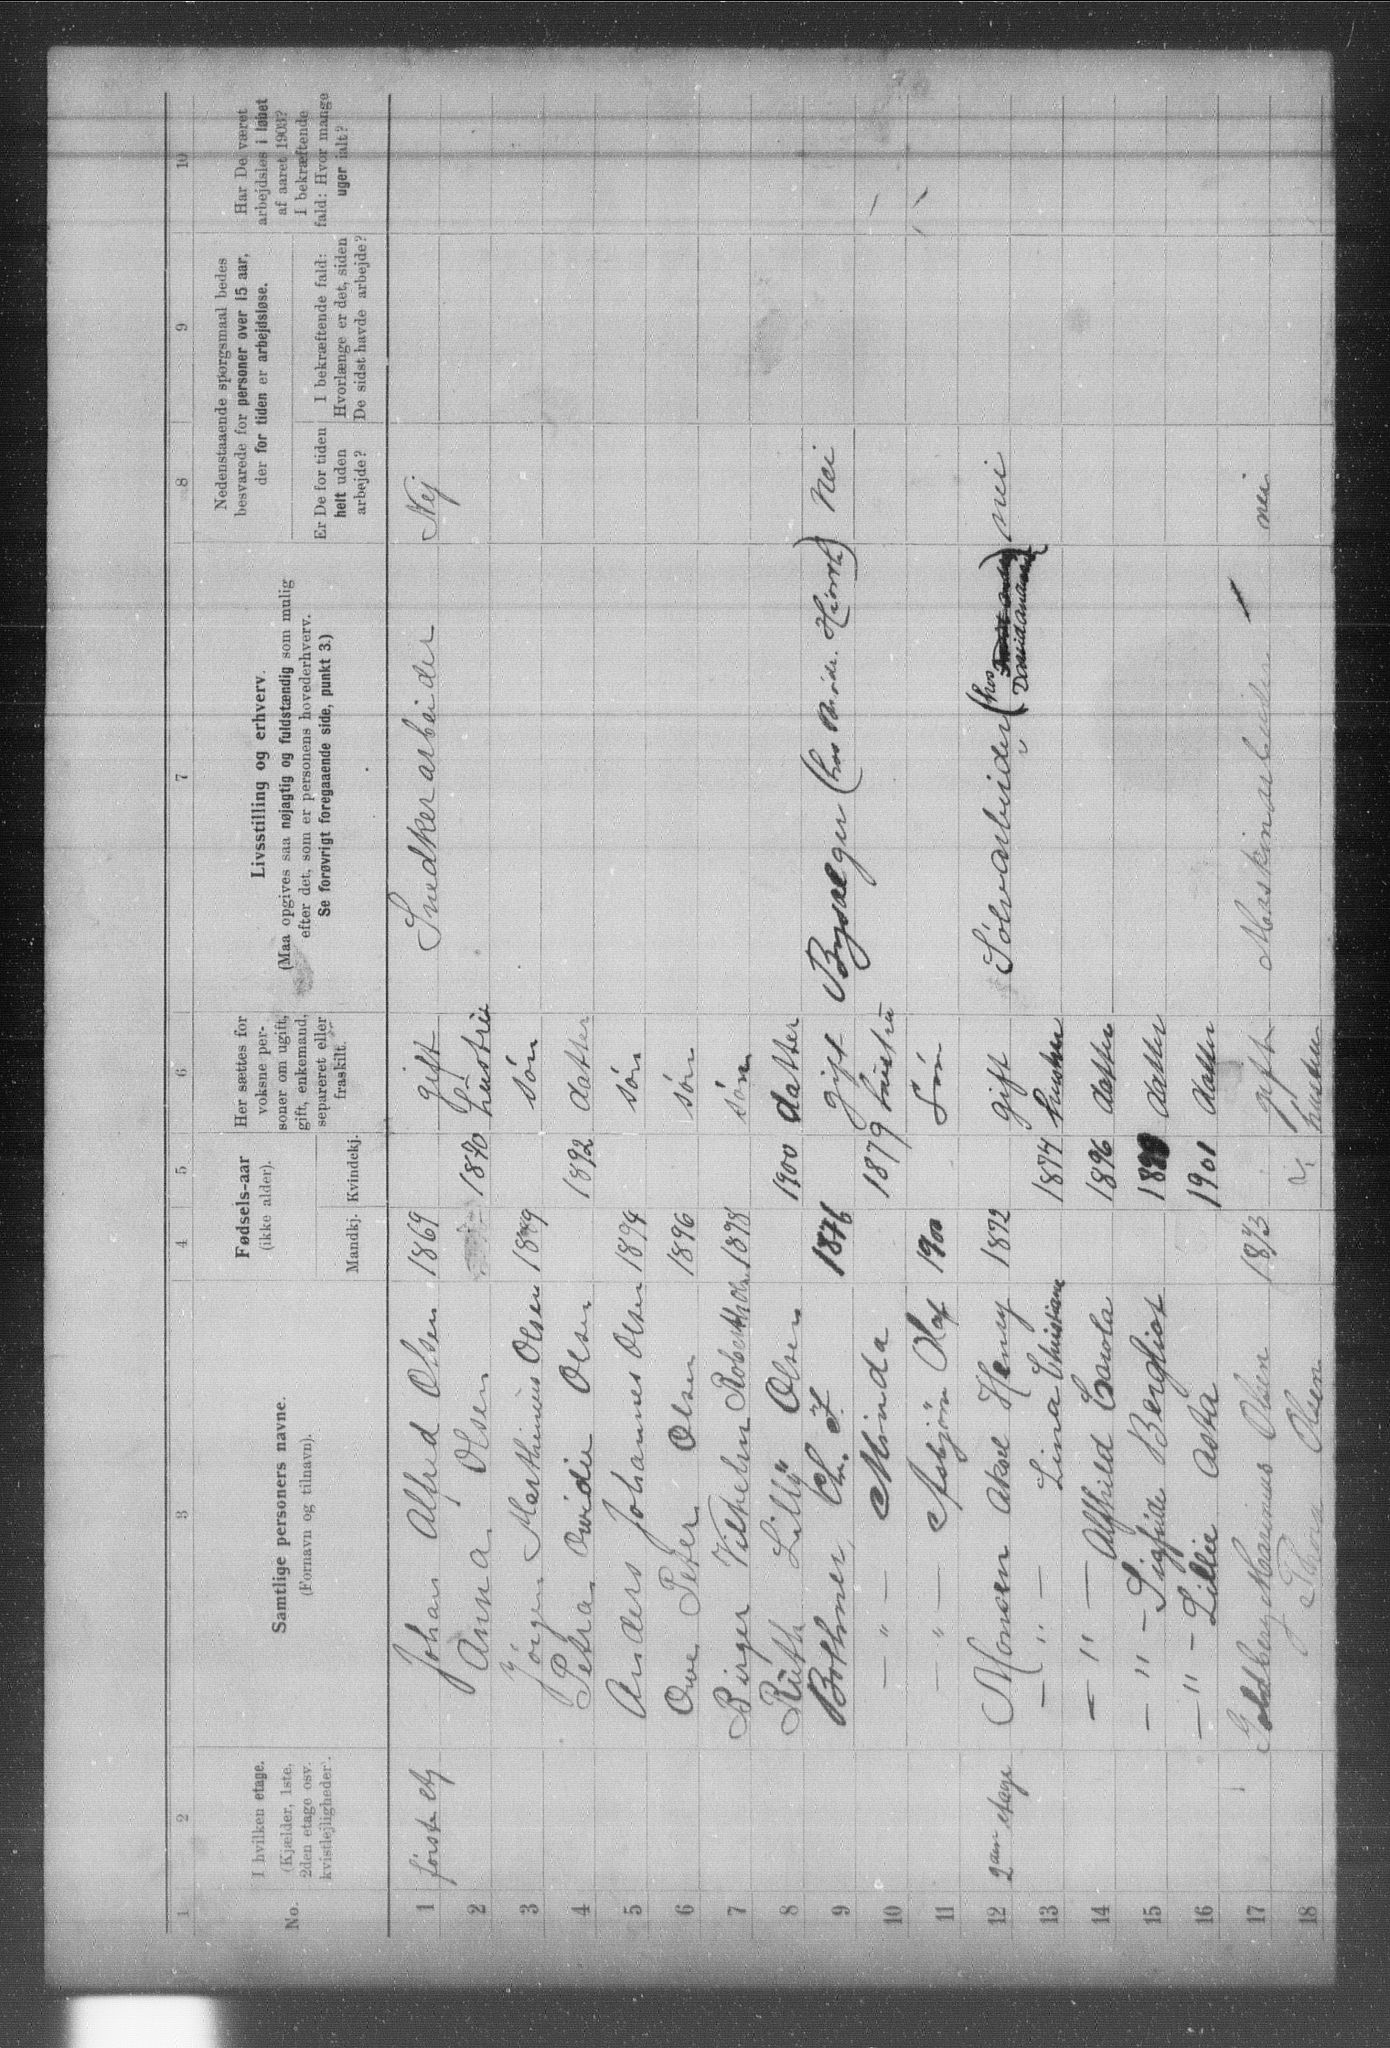 1 2 3 4 5 6 7 8 9 10
No.
I hvilken etage.
(Kjælder, 1ste,
2den etage osv.
kvistlejligheder).
Samtlige personers navne.
(Fornavn og tilnavn).
Fødsels-aar
(ikke alder).
Mandkj. Kvindekj.
Her sættes for
voksne per-
soner om ugift,
gift, enkemand,
separeret eller
fraskilt.
Livsstilling og erhverv.
(Maa opgives saa nøjagtig og fuldstændig som mulig
efter det, som er personens hovederhverv.
Se forøvrigt foregaaende side, punkt 3.)
Nedenstaaende spørgsmaal bedes
besvarede for personer over 15 aar,
der for tiden er arbejdsløse.
Er De for tiden
helt uden
arbejde?
I bekræftende fald:
Hvorlænge er det, siden
De sidst havde arbejde?
Har De været
arbejdsløs i løbet
af aaret 1903?
I bekræftende
fald: Hvor mange
uger ialt?
1 første etg Johan Alfred Olsen 1869 gift Snedkerarbeider Nej
2 Anna Olsen 1870 hustru
3 Jörgen Marthinius Olsen 1889 søn
4 Petra Ovidie Olsen 1892 datter
5 Anders Johannes Olsen 1894 søn
6 Ove Peter Olsen 1896 søn
7 Birger Vilhelm Robert Olsen 1898 søn
8 Ruth Lilly Olsen 1900 datter
9 Bothner, Chr. F. 1876 gift (hos Hiorth) Nei
10 — " — Minda 1879 hustru —
11 — " — Asbjörn Olaf 1900 Søn
12 2den etage Monsen Aksel Henry 1872 gift Sølvarbeider (hos Davidandersen) nei
13 — " — Lina Christiane 1874 hustru
14 — " — Alfhild Carola 1896 datter
15 — " — Sigfride Bergliot datter
16 — " — Lillie Asta 1901 datter
17 Goldberg Maurinus Olsen 1873 gift Maskinarbeider nei
18 Thora Olsen hustru